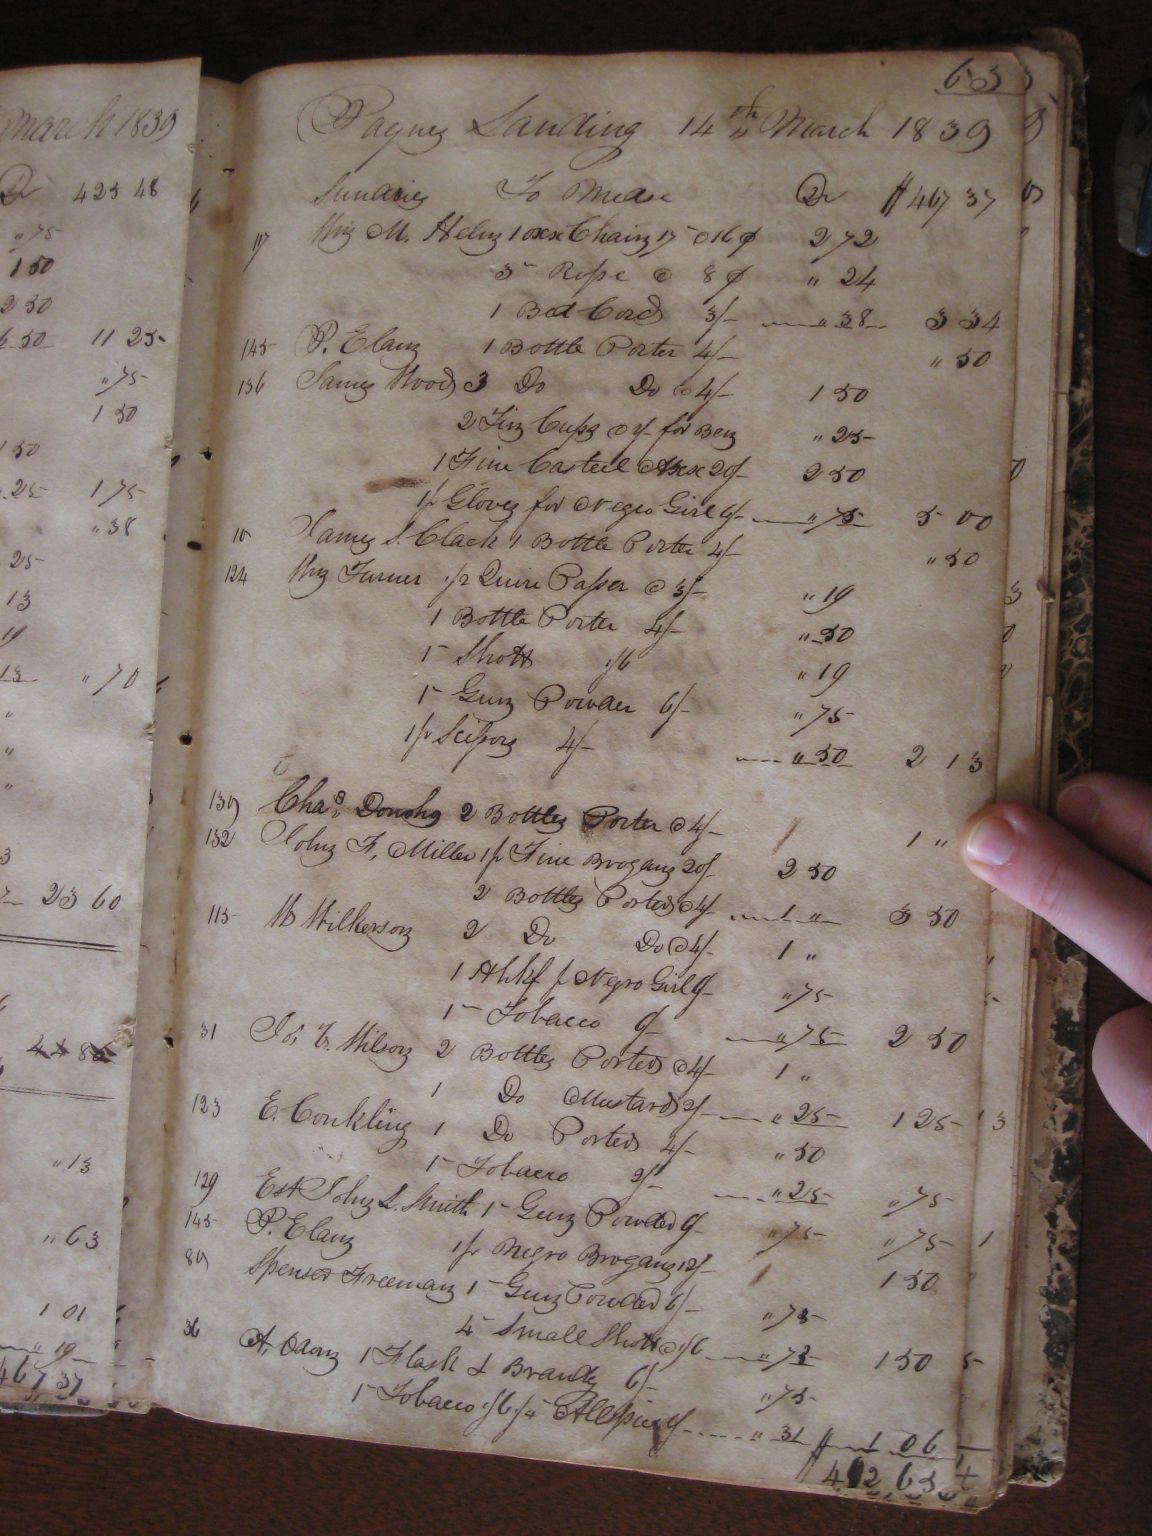 March 1839
Dr 423 48
" 75
1 50
2 50
6.50 11 25
" 75
1 50
1 50
.25 1 75
" 38
25
13
19
13 " 70
"
"
"
3
23 60
" 13
" 63
1 01
" 19
467 37
63
Paynes Landing 14th March 1839
Sundries To Mdse Dr $467 37
117 Wm M. Helm 1 oxx Chain 17 @ 16¢ 2 72
3 Rope @ 8¢ " 24
1 Bed Cord 3/- " 38 3 34
145 P. Elam 1 Bottle Porter 4/- " 50
136 James Wood 3 Do Do @ 4/- 1 50
2 Tin Cups @ 1/- for Ben " 25
1 Fine Casteel Axx 20/- 2 50
1 pr Gloves for Negro Girl 6/- " 75 5 00
10 James S. Clack 1 Bottle Porter 4/- " 50
124 Wm Turner 1/2 Quire Paper @ 3/- " 19
1 Bottle Porter 4/- " 50
1 Shott 1/6 " 19
1 Gun Powder 6/- " 75
1 pr Scissors 4/- " 50 2 13
139 Chas. Donoho 2 Bottles Porter @ 4/- 1 "
132 John F. Miller 1 pr Fine Brogans 20/- 2 50
2 Bottles Porter @ 4/- 1 " 3 50
115 W Wilkerson 2 Do Do @ 4/- 1 "
1 Hhkf f Negro Girl 6/- " 75
1 Tobacco 6/- " 75 2 50
31 Jos. T. Wilson 2 Bottles Porter @ 4/- 1 "
1 Do Mustard 2/- " 25 1 25
123 E. Conkling 1 Do Porter 4/- " 50
1 Tobacco 2/- " 25 " 75
129 Est John L. Smith 1 Gun Powder 6/- " 75 " 75
145 P. Elam 1 pr Negro Brogans 12/- 1 50
89 Spenser Freeman 1 Gun Powder 6/- " 75
4 Small Shott @ 1/6 " 75 1 50
36 A. 1 Flask & Brandy 6/- " 75
1 Tobacco 1/6 Allspice " 31 $ 1 06